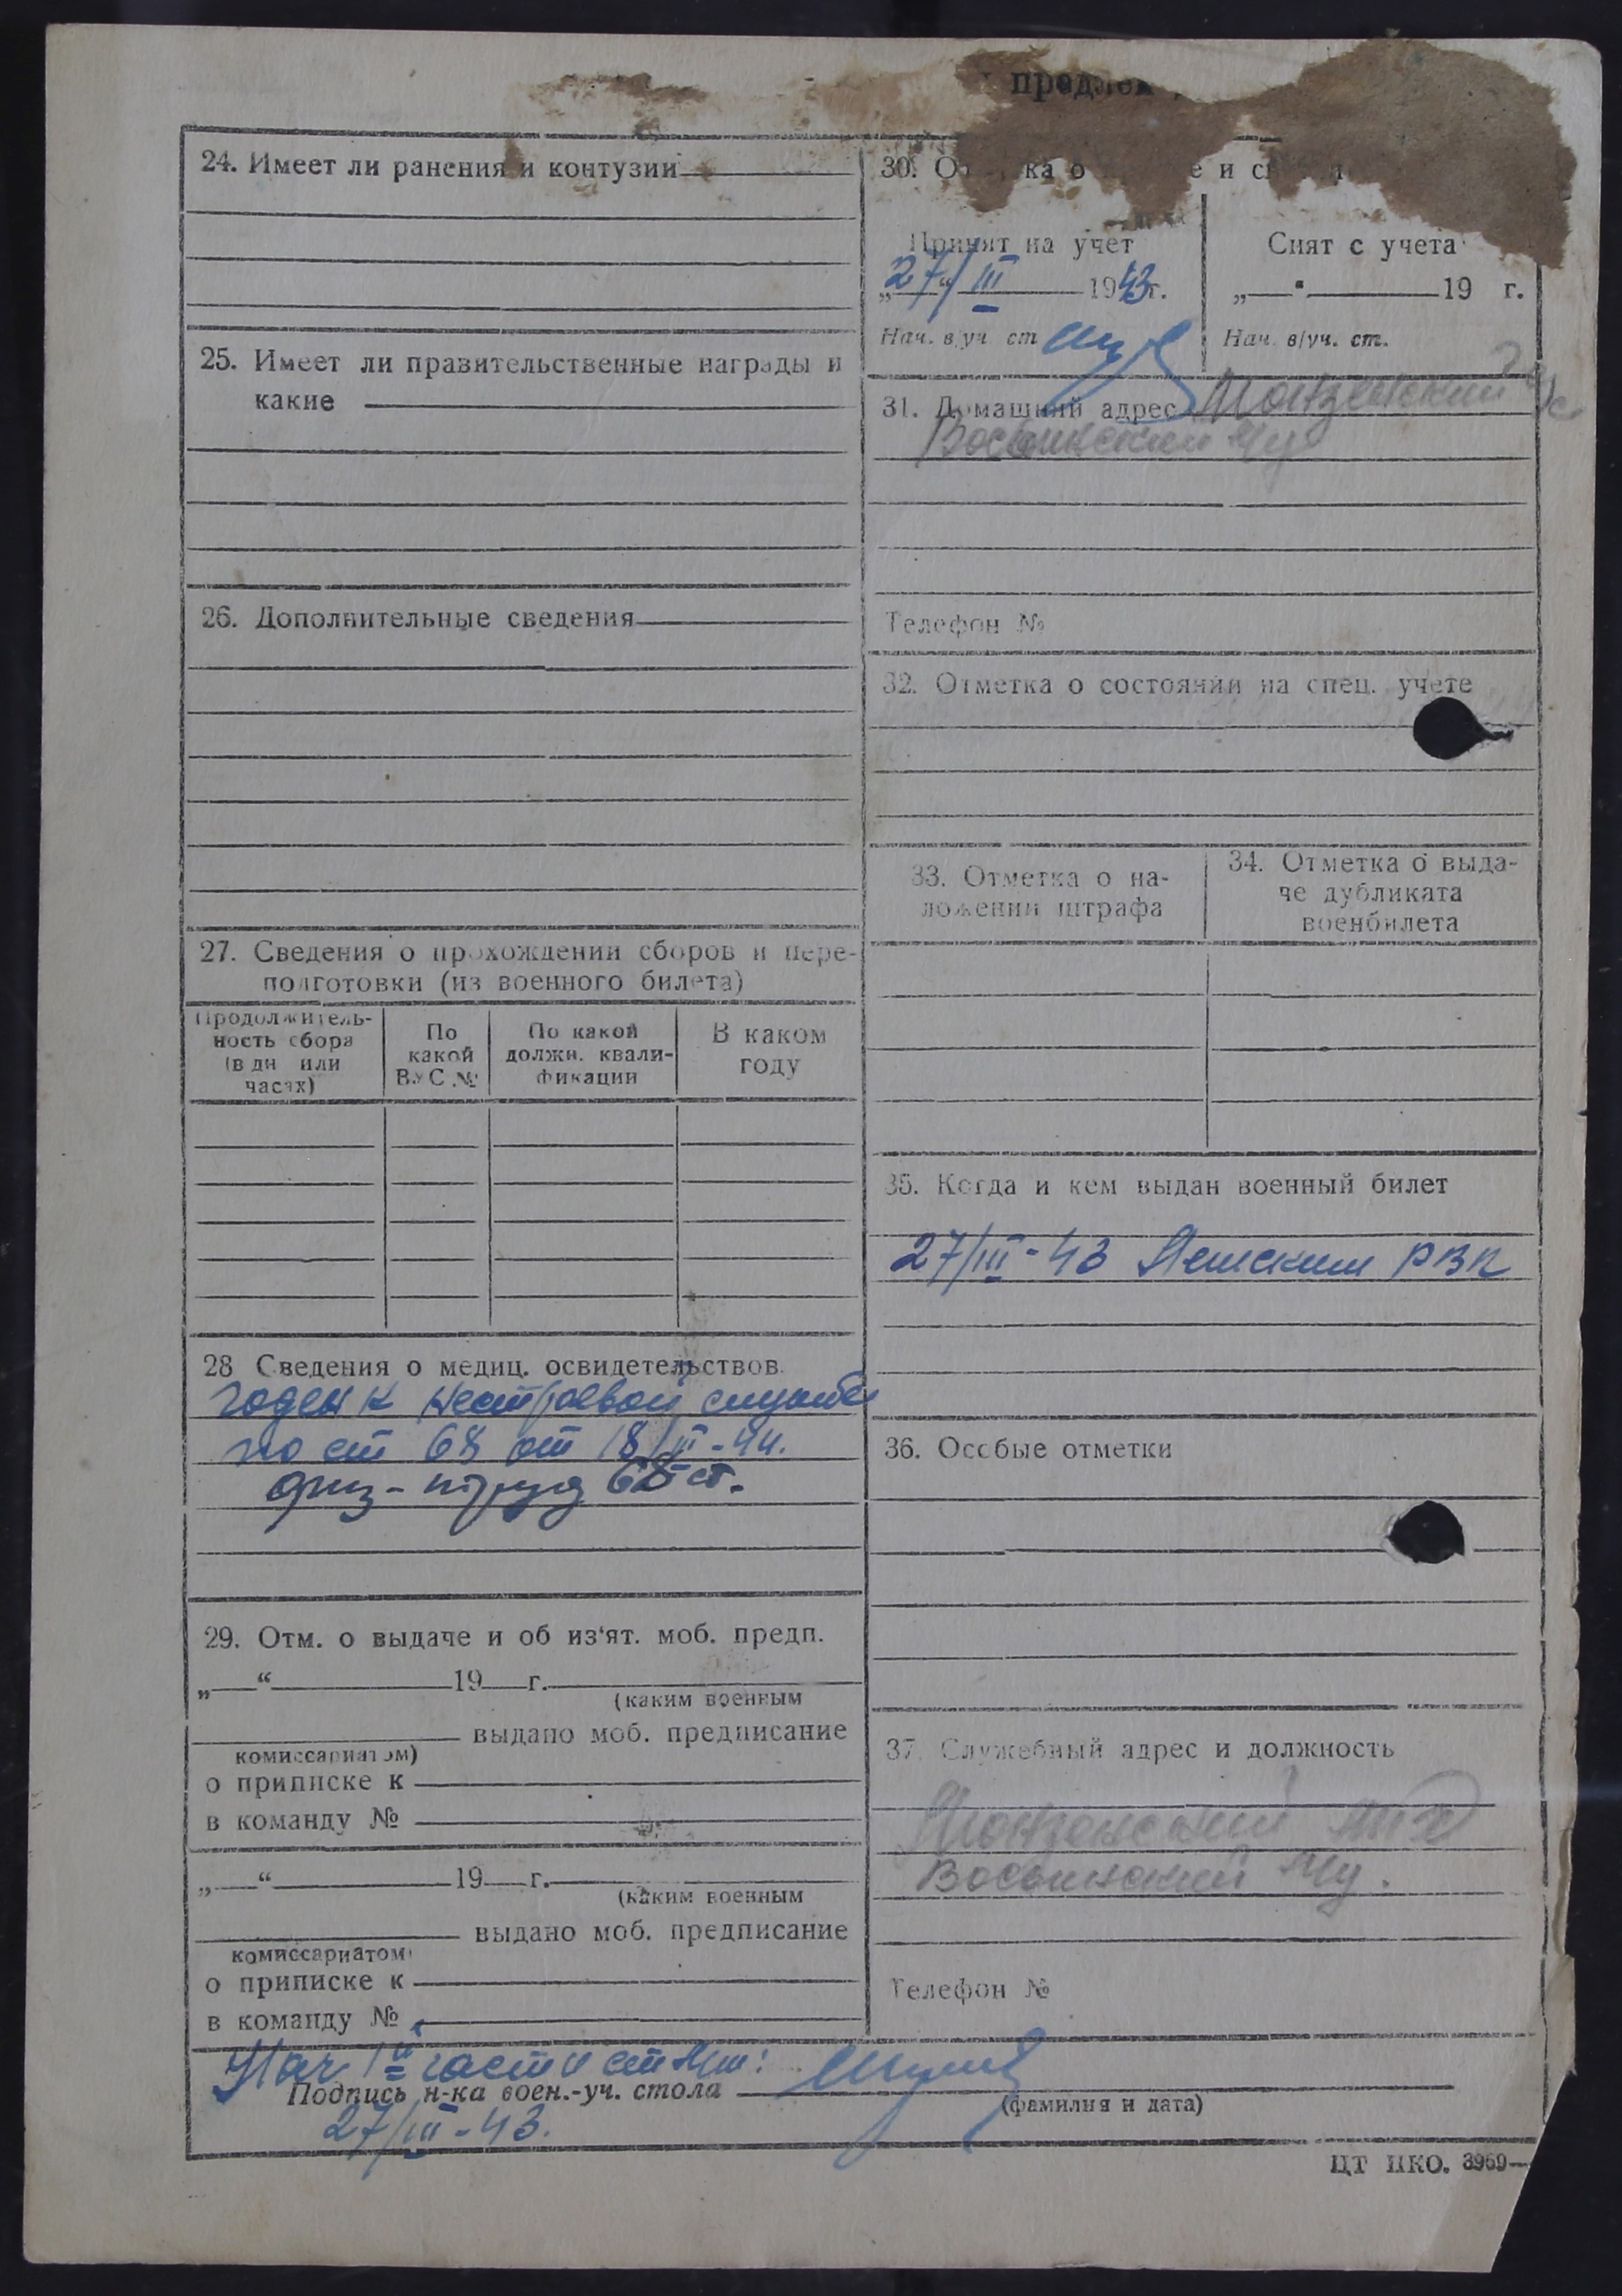 24. Имеет ли ранения и контузии
25. Имеет ли правительственные награды и
какие
26. Дополнительные сведения
27. Сведения о прохождении сборов и пере-
подготовки (из военного билета)
Продолжитель-
ность сбора
(в дн или
часах)
По
какой
ВУС №
По какой
должн. квали-
фикации
В каком
году
28 Сведения о медиц. освидетельствов.
годен к нестроевой службе
по ст 68 от 18/III-44.
физ-труд 68 ст.
29. Отм. о выдаче и об из‘ят. моб. предп.
„ “ 19 г.
(каким военным
выдано моб. предписание
комиссариатом)
о приписке к
в команду №
„ “ 19 г.
(каким военным
выдано моб. предписание
комиссариатом)
о приписке к
в команду №
30. и
Принят на учет
„27/“ III 1943 г.
Нач. в/уч. ст
Снят с учета
„ “ 19 г.
Нач. в/уч. ст.
31. Домашний адрес
Телефон №
32. Отметка о состоянии на спец. учете
33. Отметка о на-
ложении штрафа
34. Отметка о выда-
че дубликата
военбилета
35. Когда и кем выдан военный билет
27/III-43 РВК
36. Особые отметки
37. Служебный адрес и должность
Телефон №
Нач 1й части
Подпись н-ка воен.-уч. стола
(фамилия и дата)
27/III-43.
ЦТ НКО. 3969—